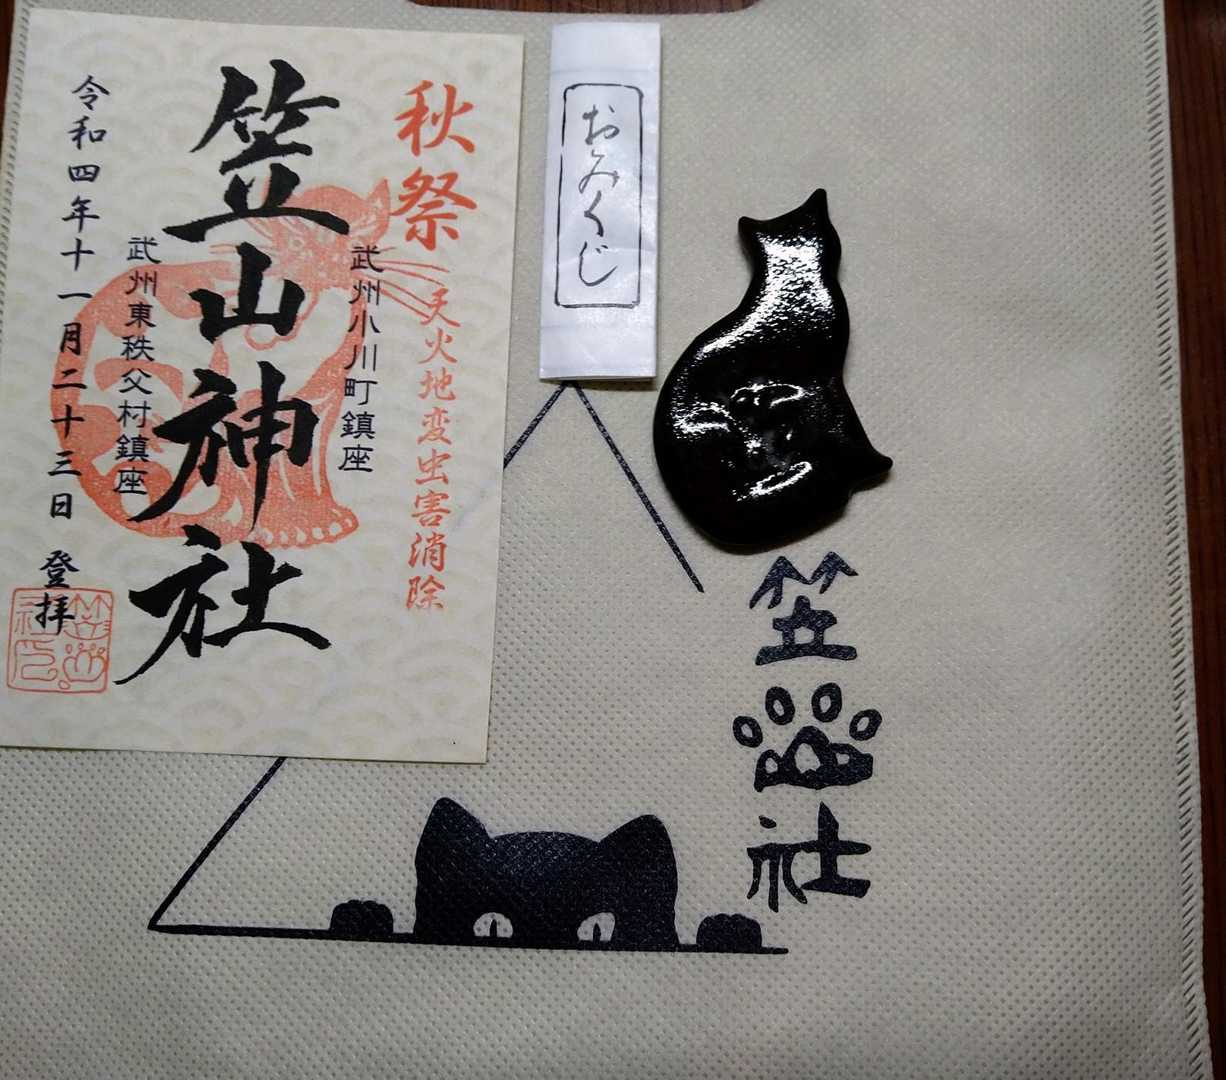 秋祭
天火地変虫害消除
武州小川町鎮座
笠山神社
武州東秩父村鎮座
令和四年十一月二十三日 登拝
おみくじ
笠
社